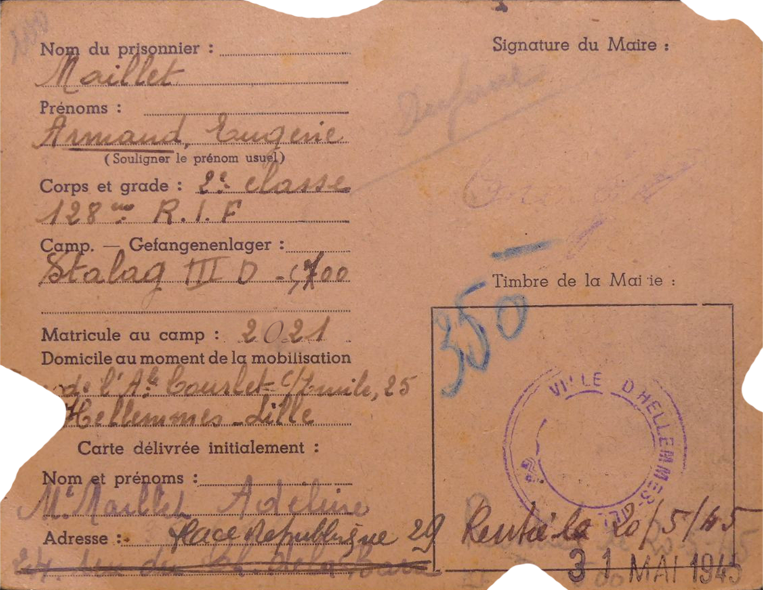 Nom du prisonnier :
Maillet
Prénoms :
Armand, Eugène
(Souligner le prénom usuel)
Corps et grade : 2e classe
128me R.I.F
Camp. — Gefangenenlager :
Stalag III D - 700
Matricule au camp : 2021
Domicile au moment de la mobilisation
de l'A Courbet 25
Hellemmes - Lille
Carte délivrée initialement :
Nom et prénoms :
Me Maillet Adeline
Adresse : place République 29
24, rue du
Signature du Maire :
350
Timbre de la Mairie :
VILLE D'HELLEMMES
Rentré le 20/5/45
31 MAI 1945